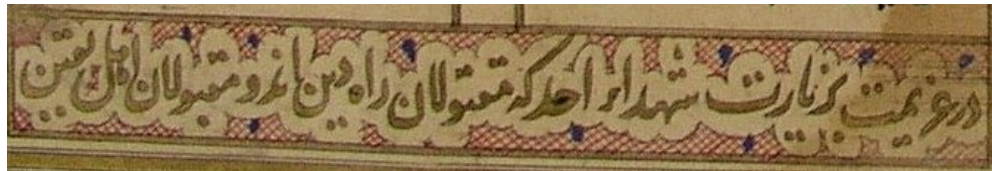 در عزیمت بزیارت شهداء احد که مقتولان راه دین اند و مقبولان اهل یقین